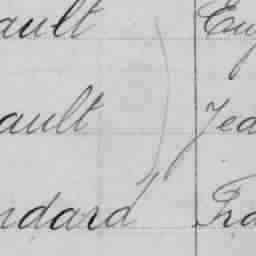 ault Eug
ault Jea
ndard Fra